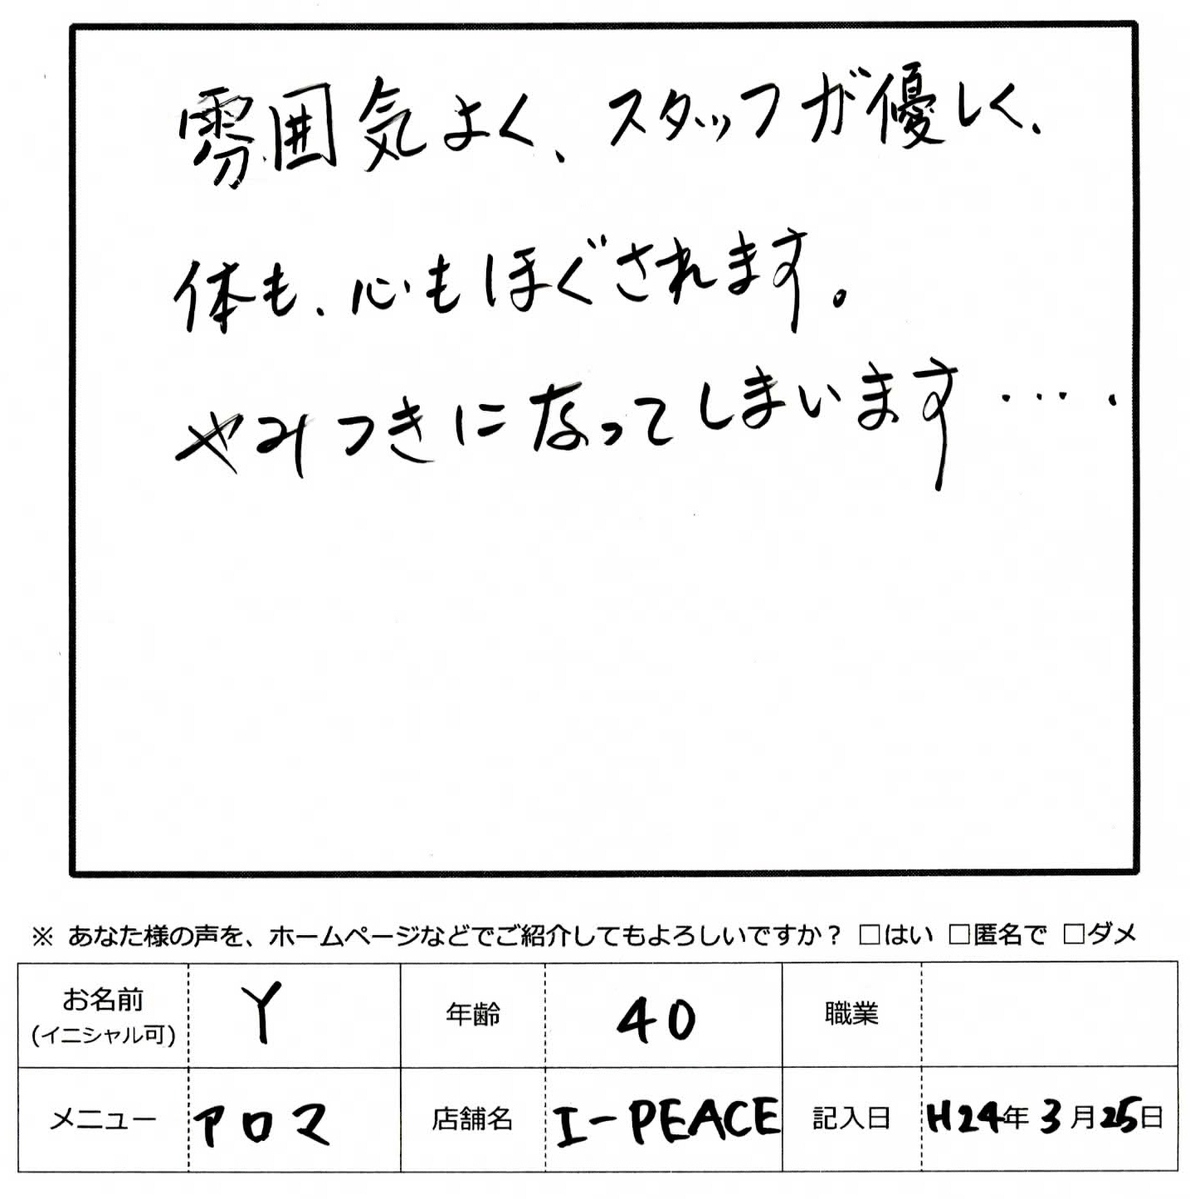 雰囲気よく、スタッフが優しく、
体も、心もほぐされます。
やみつきになってしまいます‥‥.
※ あなた様の声を、ホームページなどでご紹介してもよろしいですか？ □はい □匿名で □ダメ
お名前 (イニシャル可) Y 年齢 40 職業
メニュー アロマ 店舗名 I-PEACE 記入日 H24年3月25日